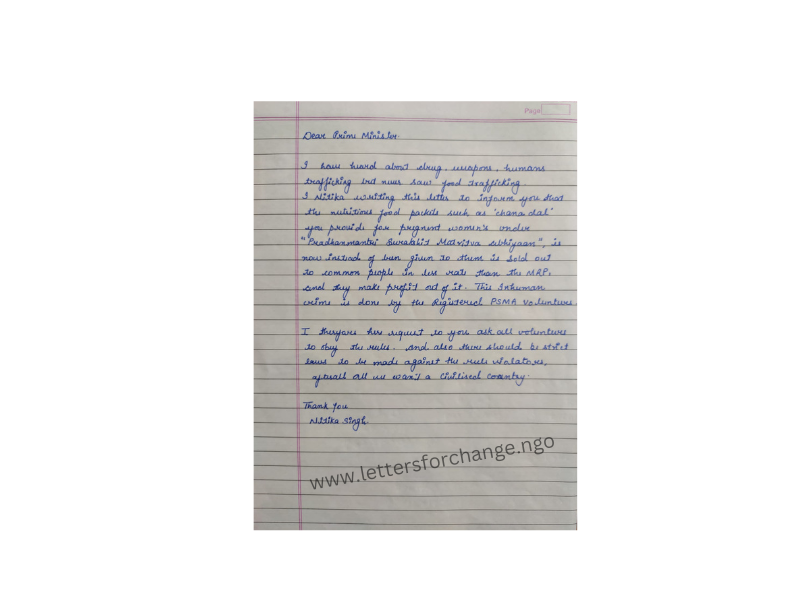 Page
Dear Prime Minister.
I have heard about drug, weapons, humans
trafficking but never saw food trafficking
I Nitika writing this letter to inform you that
the nutritious food packets such as 'chana dal'
you provide for pregnant women's under
"Pradhanmantri Surakshit Matritva Abhiyaan", is
now instead of been given to them is sold out
to common people in less rate than the MRP.
and they make profit out of it. This Inhuman
crime is done by the Registered PSMA volunteers.
I therefore here request to you ask all volunteers
to obey the rules. And also there should be strict
laws to be made against the rule violators.
afterall all we want a civilized country.
Thank You
Nitika Singh.
www.lettersforchange.ngo